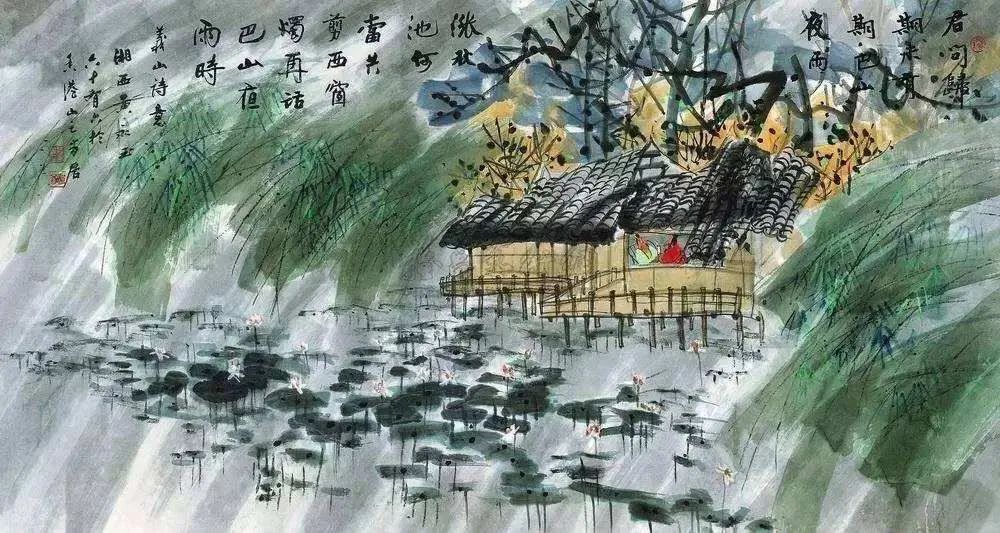 君问歸
期未有
期巴山
夜雨
漲秋
池何
當共
剪西窗
燭再话
巴山夜
雨時
義山诗意
湘西黄永玉
六十有六於
香港山之半居